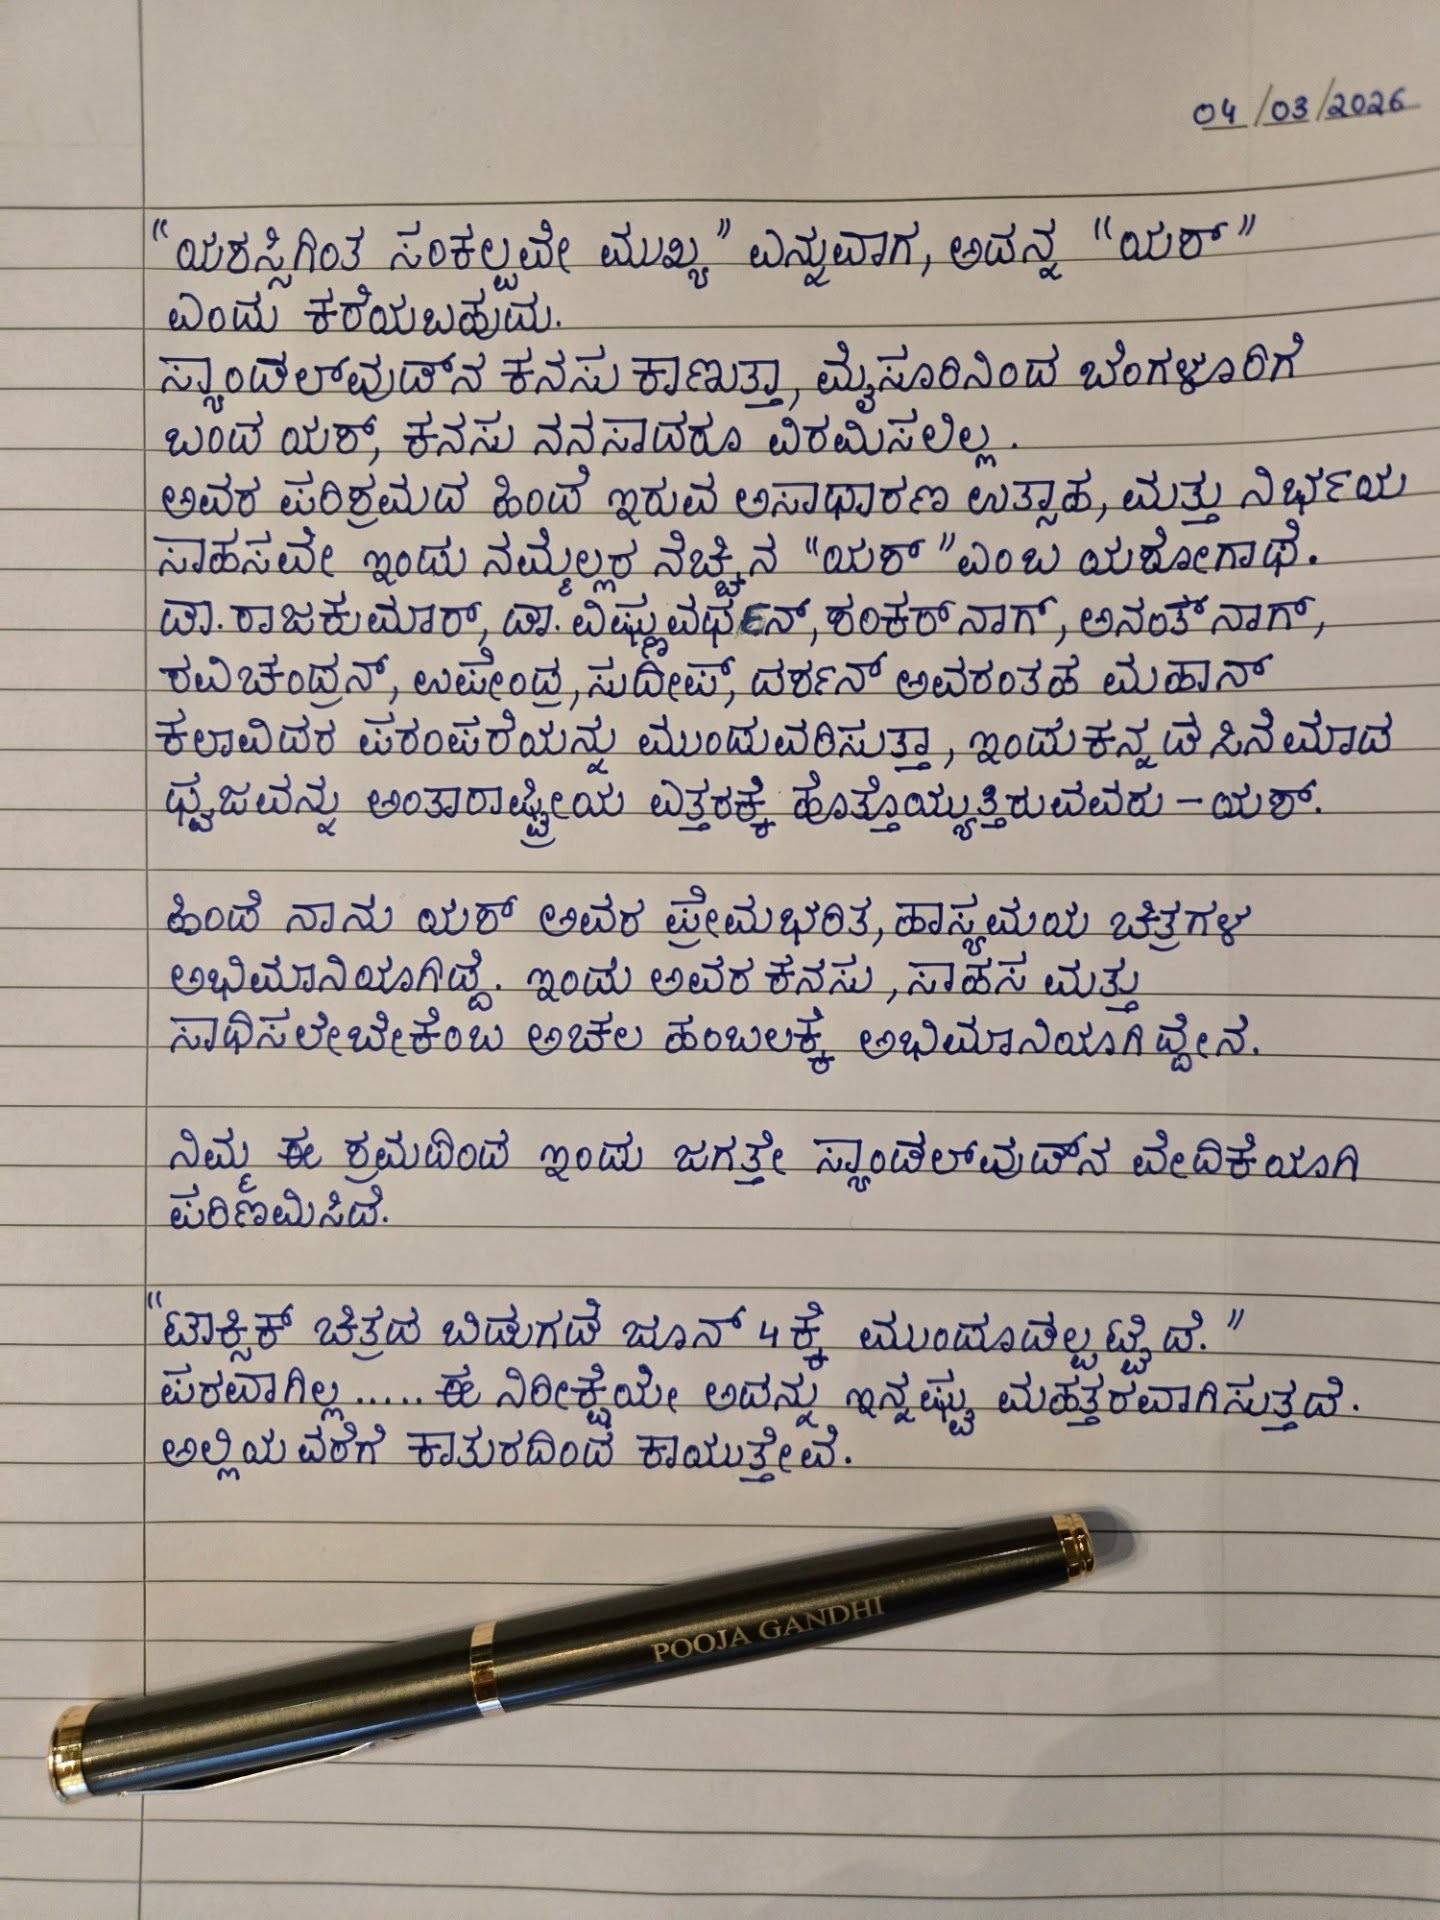 04/03/2026
"ಯಶಸ್ಸಿಗಿಂತ ಸಂಕಲ್ಪವೇ ಮುಖ್ಯ" ಎನ್ನುವಾಗ, ಅದನ್ನ "ಯಶ್"
ಎಂದು ಕರೆಯಬಹುದು.
ಸ್ಯಾಂಡಲ್‌ವುಡ್‌ನ ಕನಸು ಕಾಣುತ್ತಾ, ಮೈಸೂರಿನಿಂದ ಬೆಂಗಳೂರಿಗೆ
ಬಂದ ಯಶ್, ಕನಸು ನನಸಾದರೂ ವಿರಮಿಸಲಿಲ್ಲ.
ಅವರ ಪರಿಶ್ರಮದ ಹಿಂದೆ ಇರುವ ಅಸಾಧಾರಣ ಉತ್ಸಾಹ, ಮತ್ತು ನಿರ್ಭಯ
ಸಾಹಸವೇ ಇಂದು ನಮ್ಮೆಲ್ಲರ ನೆಚ್ಚಿನ "ಯಶ್" ಎಂಬ ಯಶೋಗಾಥೆ.
ಡಾ. ರಾಜಕುಮಾರ್, ಡಾ. ವಿಷ್ಣುವರ್ಧನ್, ಶಂಕರ್ ನಾಗ್, ಅನಂತ್ ನಾಗ್,
ರವಿಚಂದ್ರನ್, ಉಪೇಂದ್ರ, ಸುದೀಪ್, ದರ್ಶನ್ ಅವರಂತಹ ಮಹಾನ್
ಕಲಾವಿದರ ಪರಂಪರೆಯನ್ನು ಮುಂದುವರಿಸುತ್ತಾ, ಇಂದು ಕನ್ನಡ ಸಿನೆಮಾದ
ಧ್ವಜವನ್ನು ಅಂತಾರಾಷ್ಟ್ರೀಯ ಎತ್ತರಕ್ಕೆ ಹೊತ್ತೊಯ್ಯುತ್ತಿರುವವರು – ಯಶ್.
ಹಿಂದೆ ನಾನು ಯಶ್ ಅವರ ಪ್ರೇಮಭರಿತ, ಹಾಸ್ಯಮಯ ಚಿತ್ರಗಳ
ಅಭಿಮಾನಿಯಾಗಿದ್ದೆ. ಇಂದು ಅವರ ಕನಸು, ಸಾಹಸ ಮತ್ತು
ಸಾಧಿಸಲೇಬೇಕೆಂಬ ಅಚಲ ಹಂಬಲಕ್ಕೆ ಅಭಿಮಾನಿಯಾಗಿದ್ದೇನೆ.
ನಿಮ್ಮ ಈ ಶ್ರಮದಿಂದ ಇಂದು ಜಗತ್ತೇ ಸ್ಯಾಂಡಲ್‌ವುಡ್‌ನ ವೇದಿಕೆಯಾಗಿ
ಪರಿಣಮಿಸಿದೆ.
"ಟಾಕ್ಸಿಕ್ ಚಿತ್ರದ ಬಿಡುಗಡೆ ಜೂನ್ 4 ಕ್ಕೆ ಮುಂದೂಡಲ್ಪಟ್ಟಿದೆ."
ಪರವಾಗಿಲ್ಲ..... ಈ ನಿರೀಕ್ಷೆಯೇ ಅದನ್ನು ಇನ್ನಷ್ಟು ಮಹತ್ತರವಾಗಿಸುತ್ತದೆ.
ಅಲ್ಲಿಯವರೆಗೆ ಕಾತುರದಿಂದ ಕಾಯುತ್ತೇವೆ.
POOJA GANDHI